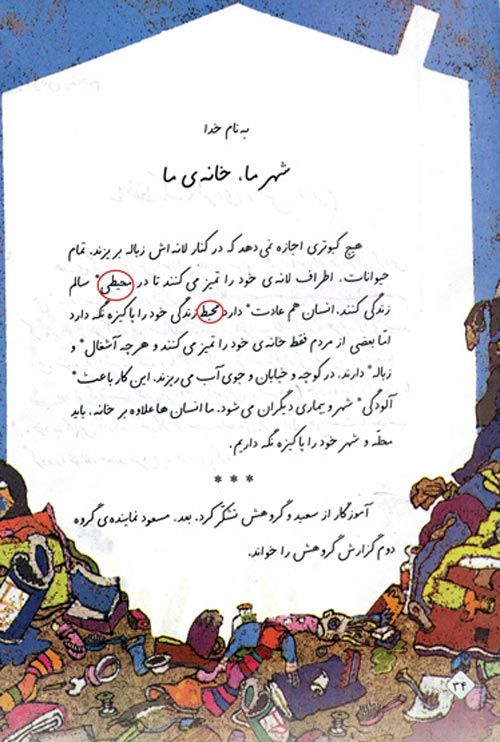 به نام خدا
شهر ما، خانه‌ی ما
هیچ کبوتری اجازه نمی دهد که در کنار لانه اش زباله بریزند. تمام
حیوانات، اطراف لانه‌ی خود را تمیز می کنند تا در محیطی* سالم
زندگی کنند. انسان هم عادت* دارد محیط زندگی خود را پاکیزه نگه دارد
امّا بعضی از مردم فقط خانه‌ی خود را تمیز می کنند و هر چه آشغال* و
زباله* دارند، در کوچه و خیابان و جوی آب می ریزند. این کار باعث*
آلودگی* شهر و بیماری دیگران می شود. ما انسان ها علاوه بر خانه، باید
محلّه و شهر خود را پاکیزه نگه داریم.
* * *
آموزگار از سعید و گروهش تشکّر کرد. بعد، مسعود نماینده‌ی گروه
دوم گزارش گروهش را خواند.
۳۴